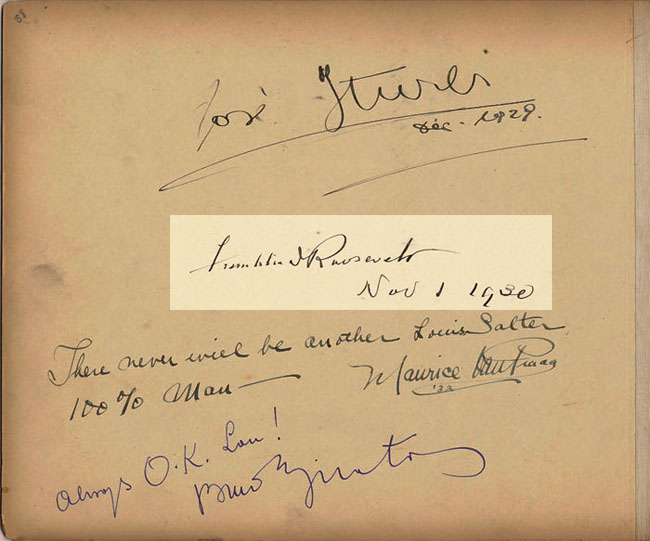 José Iturbi
Déc. 1929.
Franklin D Roosevelt
Nov 1 1930
There never will be another Louis Salter
100% Man—
Maurice Van Praag
'33
Always O.K. Lou!
Bruno Zirato